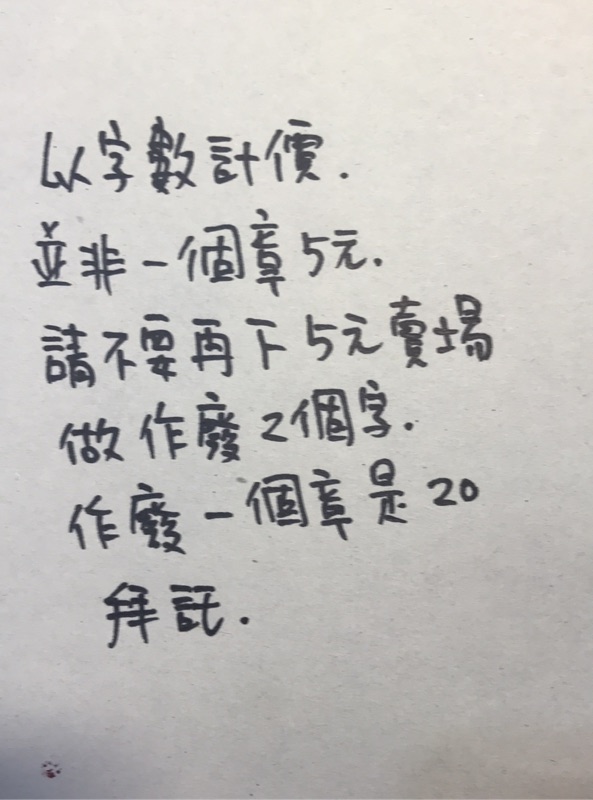 以字數計價.
並非一個章5元.
請不要再下5元賣場
做作廢2個字.
作廢一個章是20
拜託.